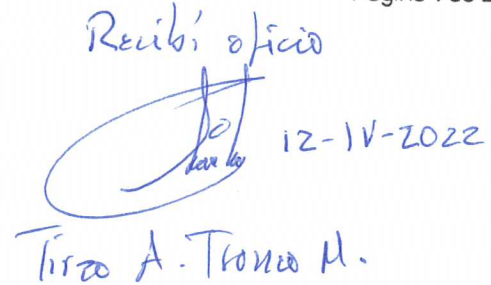 Recibí oficio
12-IV-2022
Tirzo A. Tronco M.